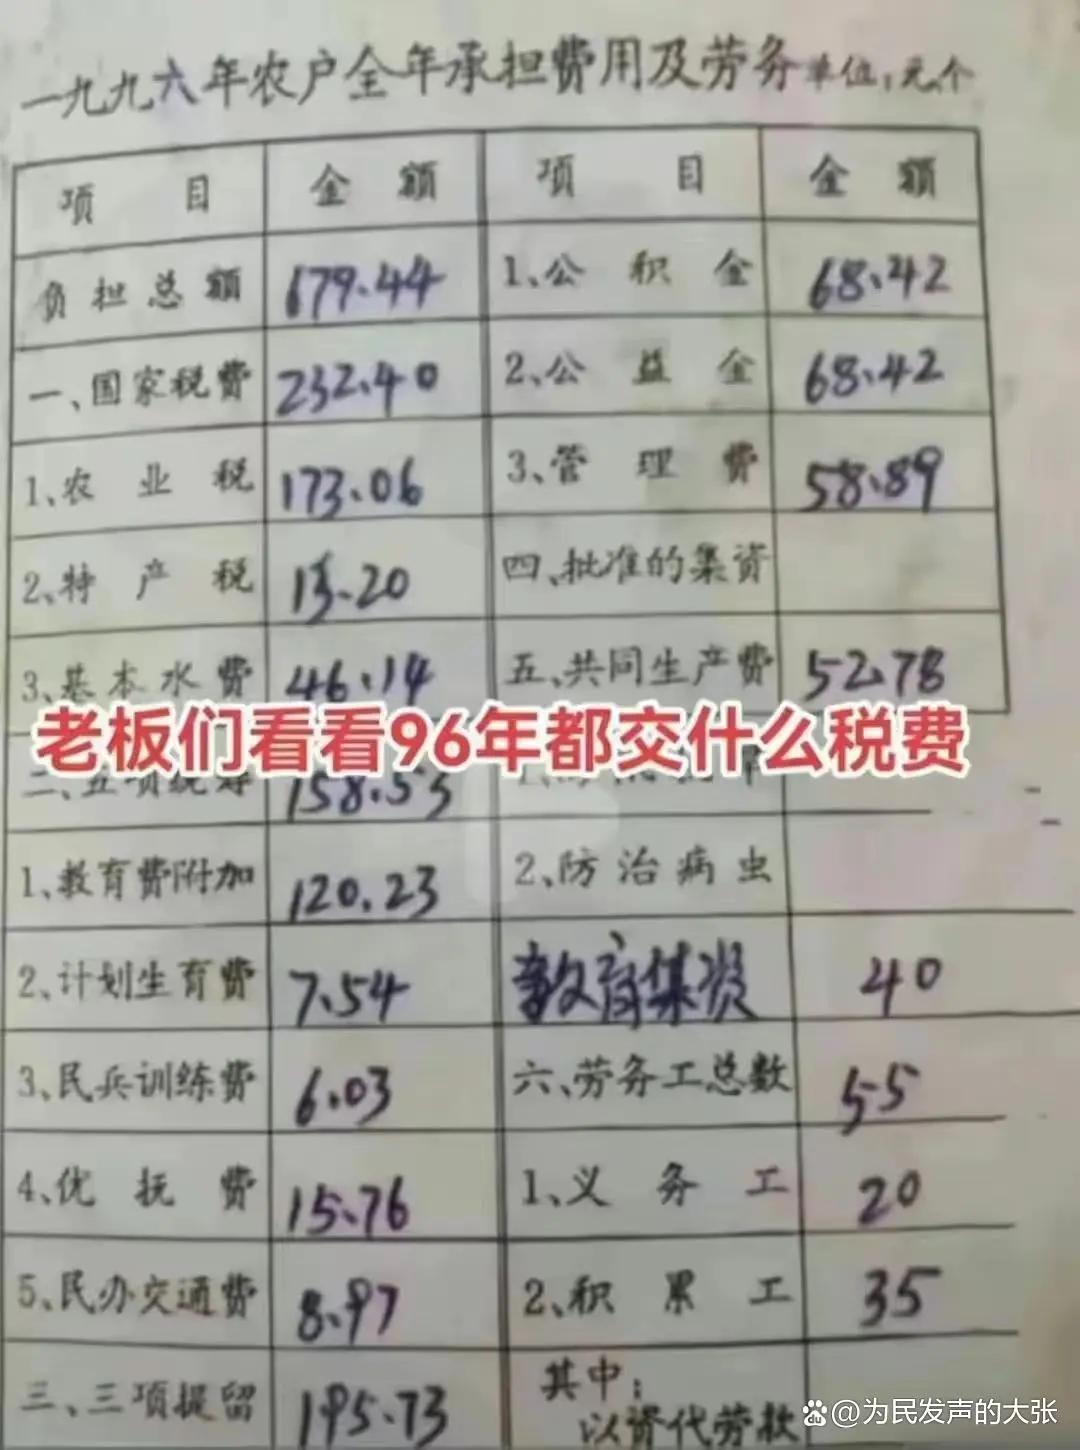 一九九六年农户全年承担费用及劳务 单位:元、个
项目 金额 项目 金额
负担总额 679.44 1、公积金 68.42
一、国家税费 232.40 2、公益金 68.42
1、农业税 173.06 3、管理费 58.89
2、特产税 13.20 四、批准的集资
3、基本水费 46.14 五、共同生产费 52.78
老板们看看96年都交什么税费
二、五项统筹 158.53
1、教育费附加 120.23 2、防治病虫
2、计划生育费 7.54 教育集资 40
3、民兵训练费 6.03 六、劳务工总数 55
4、优抚费 15.76 1、义务工 20
5、民办交通费 8.97 2、积累工 35
三、三项提留 195.73 其中:
以资代劳款
@为民发声的大张